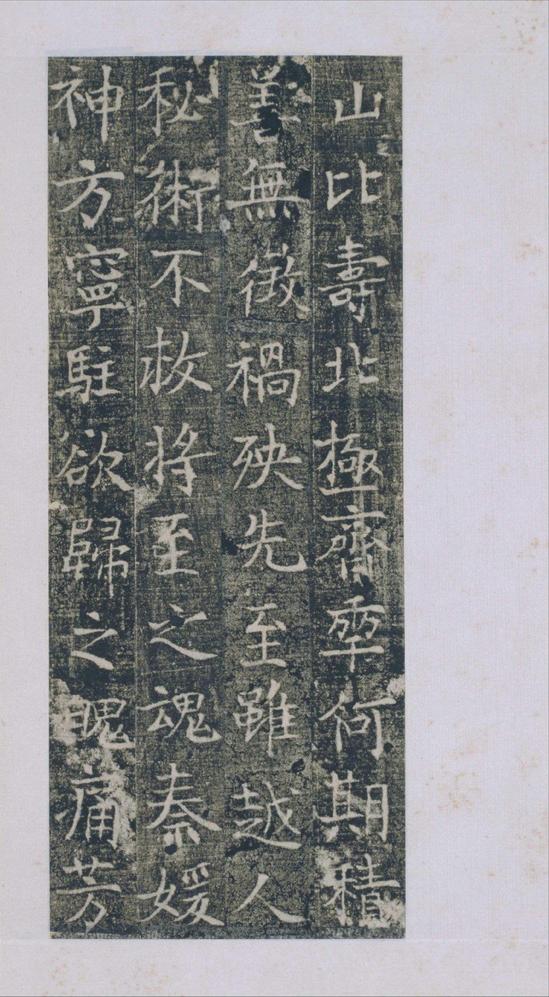 山比壽北極齊何期積
善無徵禍殃先至雖越人
秘術不救將至之魂秦媛
神方寧駐欲歸之魄痛芳